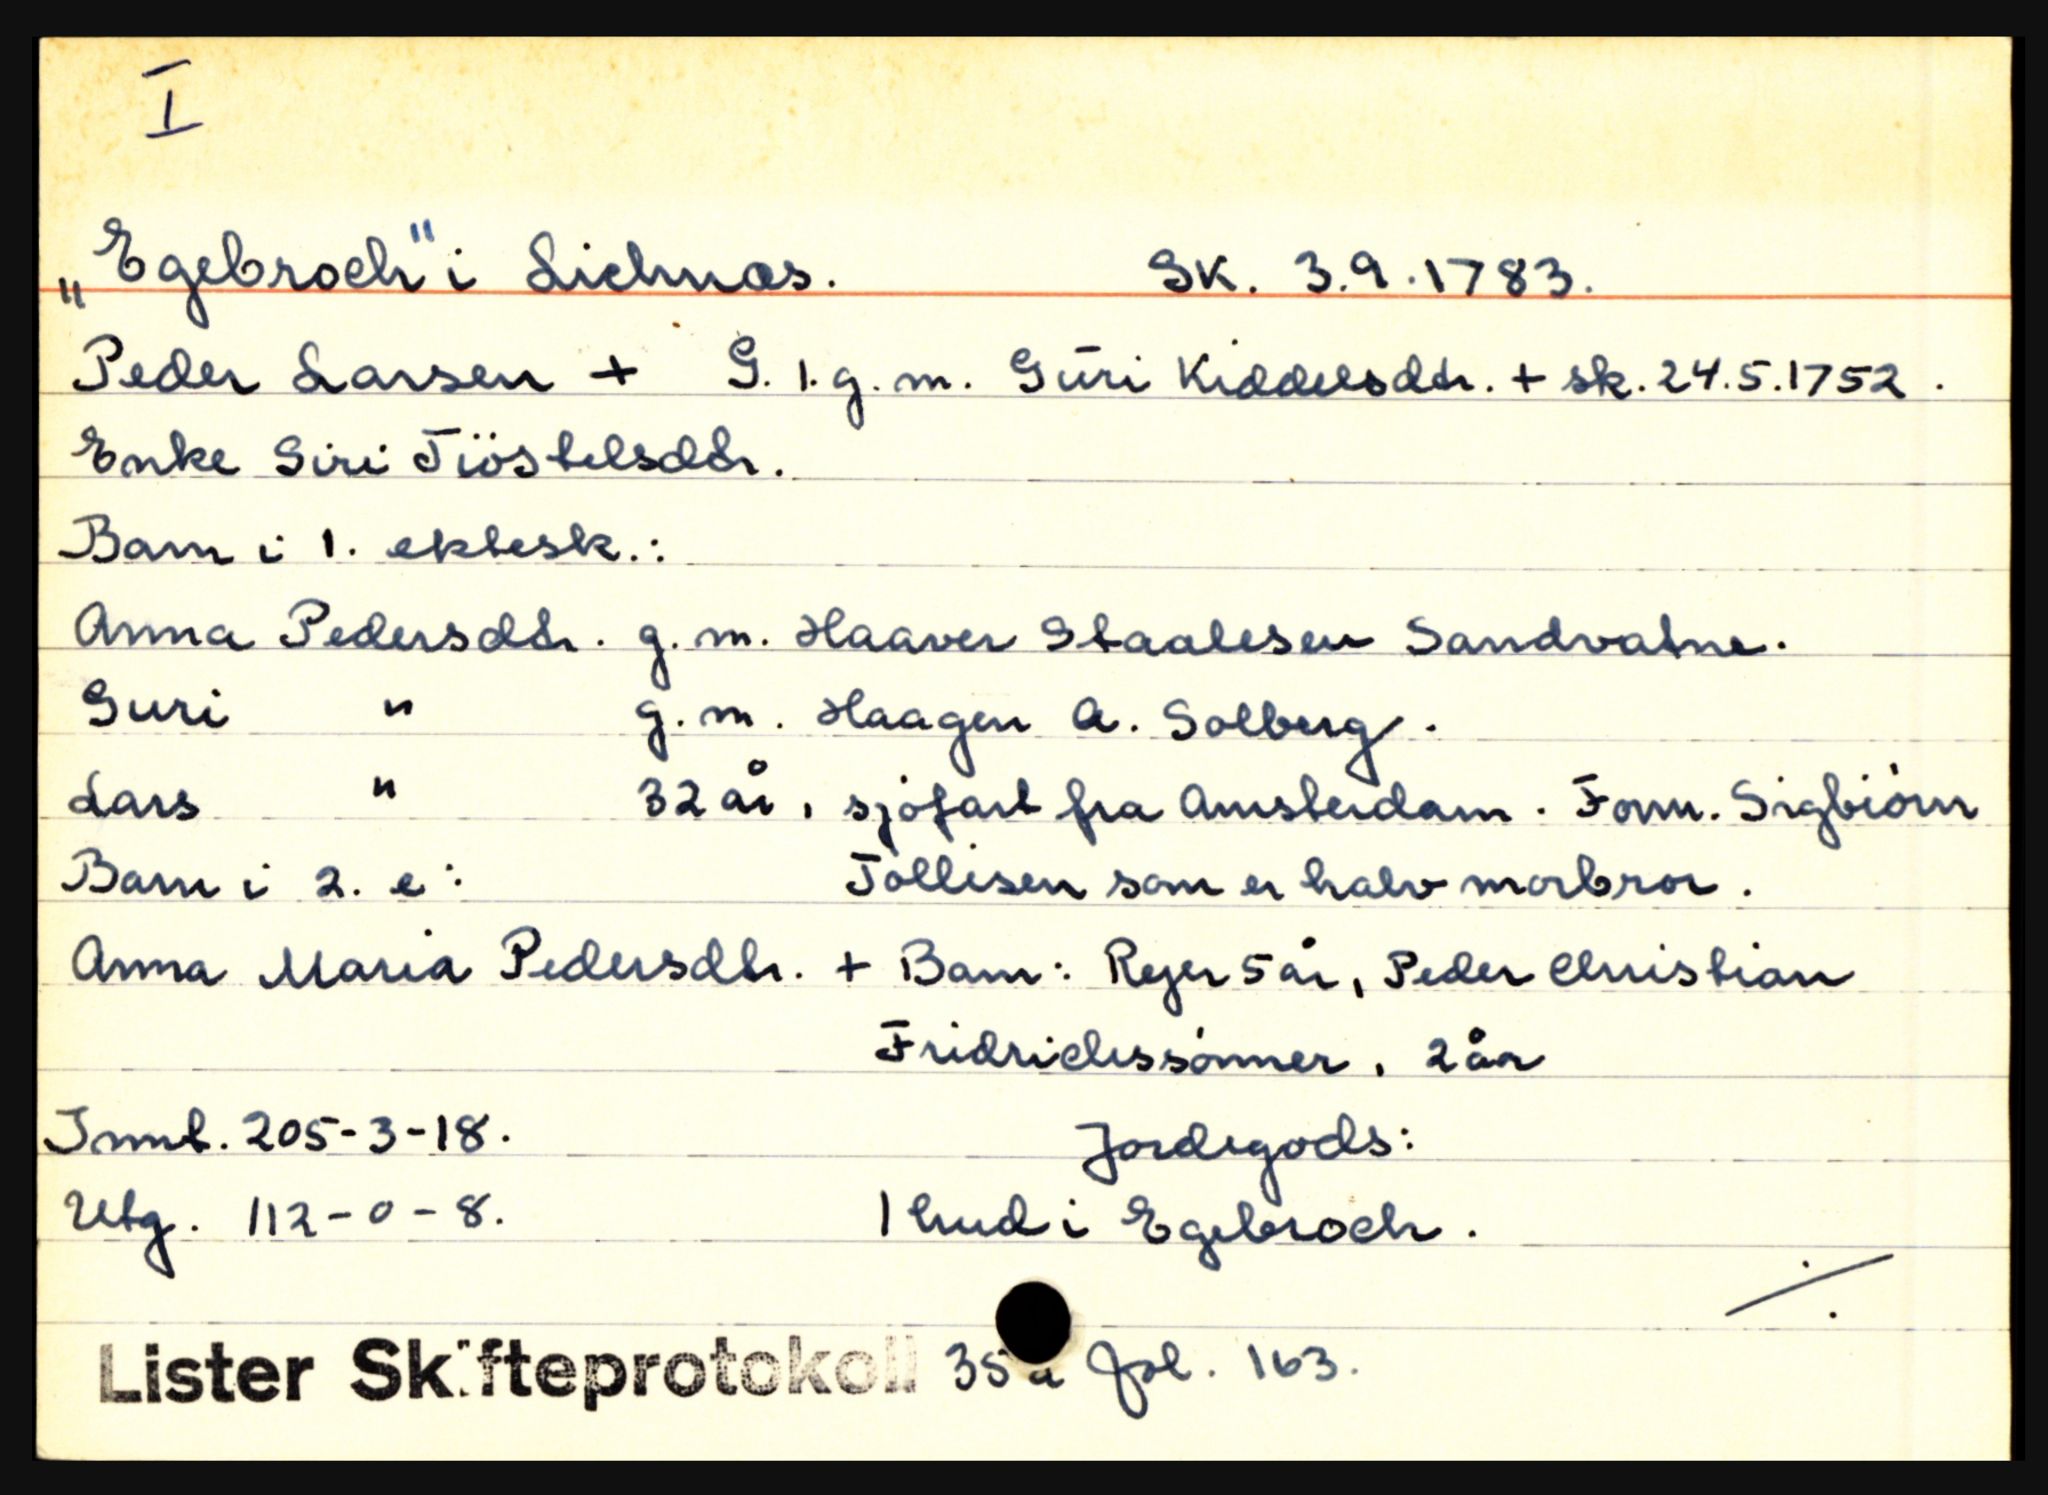 I
„Egebroch" i Lichnas. Sk. 3.9.1783.
Peder Larsen + G. 1.g.m. Guri Kiddelsdtr. + sk. 24.5.1752.
Enke Siri Tiöstelsdtr.
Barn i 1. ektesk.:
Anna Pedersdtr. g.m. Haaver Staalesen Sandvatne.
Guri " g.m. Haagen A. Solberg.
Lars " 32 år, sjøfart fra Amsterdam. Form. Sigbiørn
Barn i 2. e: Tollisen som er halv morbror.
Anna Maria Pedersdtr. + Barn: Rejer 5 år, Peder Christian
Fridrichssønner, 2 år
Innt. 205-3-18. Jordegods:
Utg. 112-0-8. 1 hud i Egebroch.
./.
Lister Skifteprotokoll 35a fol. 163.